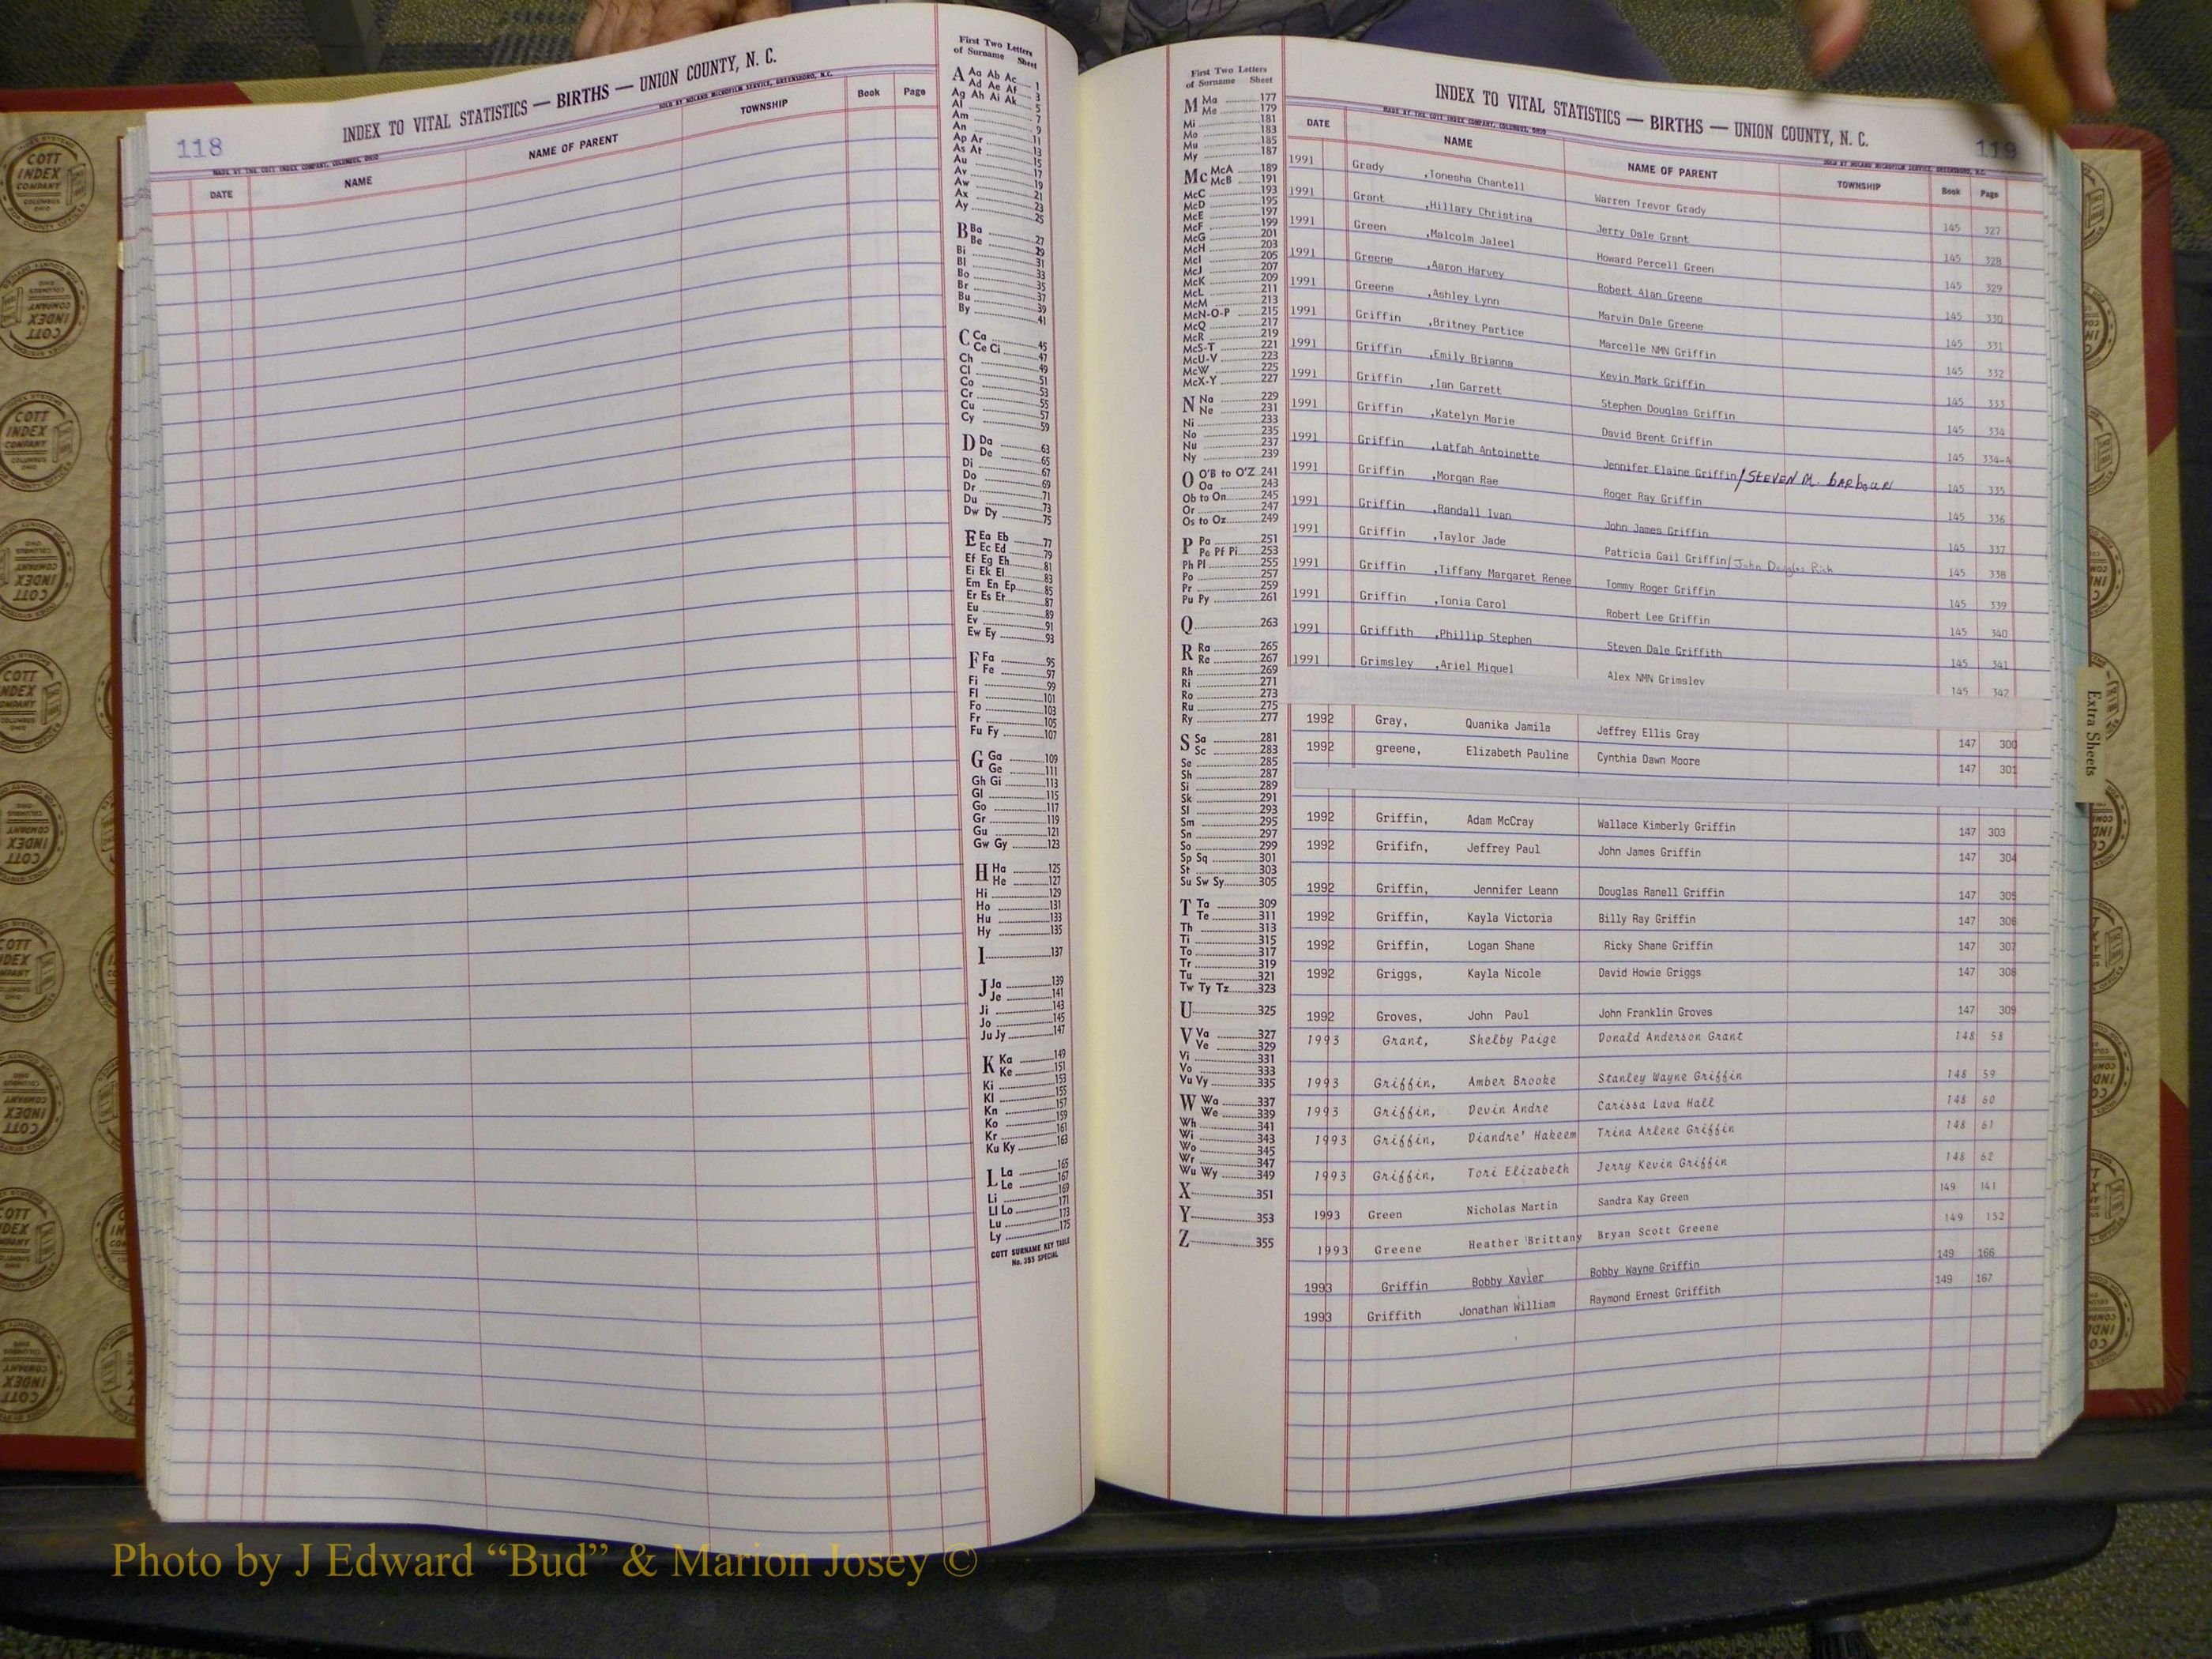 118
INDEX TO VITAL STATISTICS — BIRTHS — UNION COUNTY, N. C.
MADE BY THE COTT INDEX COMPANY, COLUMBUS, OHIO
SOLD BY NOLAND MICROFILM SERVICE, GREENSBORO, N.C.
DATE NAME NAME OF PARENT TOWNSHIP Book Page
First Two Letters
of Surname Sheet
A Aa Ab Ac 1
Ad Ae Af 3
Ag Ah Ai Ak 5
Al 7
Am 9
An 11
Ap Ar 13
As At 15
Au 17
Av 19
Aw 21
Ax 23
Ay 25
B Ba 27
Be 29
Bi 31
Bl 33
Bo 35
Br 37
Bu 39
By 41
C Ca 45
Ce Ci 47
Ch 49
Cl 51
Co 53
Cr 55
Cu 57
Cy 59
D Da 63
De 65
Di 67
Do 69
Dr 71
Du 73
Dw Dy 75
E Ea Eb 77
Ec Ed 79
Ef Eg Eh 81
Ei Ek El 83
Em En Ep 85
Er Es Et 87
Eu 89
Ev 91
Ew Ey 93
F Fa 95
Fe 97
Fi 99
Fl 101
Fo 103
Fr 105
Fu Fy 107
G Ga 109
Ge 111
Gh Gi 113
Gl 115
Go 117
Gr 119
Gu 121
Gw Gy 123
H Ha 125
He 127
Hi 129
Ho 131
Hu 133
Hy 135
I 137
J Ja 139
Je 141
Ji 143
Jo 145
Ju Jy 147
K Ka 149
Ke 151
Ki 153
Kl 155
Kn 157
Ko 159
Kr 161
Ku Ky 163
L La 165
Le 167
Li 169
Ll Lo 171
Lu 173
Ly 175
COTT SURNAME KEY TABLE
No. 355 SPECIAL
First Two Letters
of Surname Sheet
M Ma 177
Me 179
Mi 181
Mo 183
Mu 185
My 187
Mc McA 189
McB 191
McC 193
McD 195
McE 197
McF 199
McG 201
McH 203
McI 205
McJ 207
McK 209
McL 211
McM 213
McN-O-P 215
McQ 217
McR 219
McS-T 221
McU-V 223
McW 225
McX-Y 227
N Na 229
Ne 231
Ni 233
No 235
Nu 237
Ny 239
O O'B to O'Z 241
Oa 243
Ob to On 245
Or 247
Os to Oz 249
P Pa 251
Pe Pf Pi 253
Ph Pl 255
Po 257
Pr 259
Pu Py 261
Q 263
R Ra 265
Re 267
Rh 269
Ri 271
Ro 273
Ru 275
Ry 277
S Sa 281
Sc 283
Se 285
Sh 287
Si 289
Sk 291
Sl 293
Sm 295
Sn 297
So 299
Sp Sq 301
St 303
Su Sw Sy 305
T Ta 309
Te 311
Th 313
Ti 315
To 317
Tr 319
Tu 321
Tw Ty Tz 323
U 325
V Va 327
Ve 329
Vi 331
Vo 333
Vu Vy 335
W Wa 337
We 339
Wh 341
Wi 343
Wo 345
Wr 347
Wu Wy 349
X 351
Y 353
Z 355
INDEX TO VITAL STATISTICS — BIRTHS — UNION COUNTY, N. C.
119
MADE BY THE COTT INDEX COMPANY, COLUMBUS, OHIO
SOLD BY NOLAND MICROFILM SERVICE, GREENSBORO, N.C.
DATE NAME NAME OF PARENT TOWNSHIP Book Page
1991 Grady ,Ionesha Chantell Warren Trevor Grady 145 327
1991 Grant ,Hillary Christina Jerry Dale Grant 145 328
1991 Green ,Malcolm Jaleel Howard Percell Green 145 329
1991 Greene ,Aaron Harvey Robert Alan Greene 145 330
1991 Greene ,Ashley Lynn Marvin Dale Greene 145 331
1991 Griffin ,Britney Partice Marcelle NMN Griffin 145 332
1991 Griffin ,Emily Brianna Kevin Mark Griffin 145 333
1991 Griffin ,Ian Garrett Stephen Douglas Griffin 145 334
1991 Griffin ,Katelyn Marie David Brent Griffin 145 334-A
1991 Griffin ,Latfah Antoinette Jennifer Elaine Griffin/STEVEN M. BARBOUR 145 335
1991 Griffin ,Morgan Rae Roger Ray Griffin 145 336
1991 Griffin ,Randall Ivan John James Griffin 145 337
1991 Griffin ,Taylor Jade Patricia Gail Griffin/John Douglas Rich 145 338
1991 Griffin ,Tiffany Margaret Renee Tommy Roger Griffin 145 339
1991 Griffin ,Tonia Carol Robert Lee Griffin 145 340
1991 Griffith ,Phillip Stephen Steven Dale Griffith 145 341
1991 Grimsley ,Ariel Miquel Alex NMN Grimsley 145 342
1992 Gray, Quanika Jamila Jeffrey Ellis Gray 147 300
1992 greene, Elizabeth Pauline Cynthia Dawn Moore 147 301
1992 Griffin, Adam McCray Wallace Kimberly Griffin 147 303
1992 Grififn, Jeffrey Paul John James Griffin 147 304
1992 Griffin, Jennifer Leann Douglas Ranell Griffin 147 305
1992 Griffin, Kayla Victoria Billy Ray Griffin 147 306
1992 Griffin, Logan Shane Ricky Shane Griffin 147 307
1992 Griggs, Kayla Nicole David Howie Griggs 147 308
1992 Groves, John Paul John Franklin Groves 147 309
1993 Grant, Shelby Paige Donald Anderson Grant 148 58
1993 Griffin, Amber Brooke Stanley Wayne Griffin 148 59
1993 Griffin, Devin Andre Carissa Lava Hall 148 60
1993 Griffin, Diandre' Hakeem Trina Arlene Griffin 148 61
1993 Griffin, Tori Elizabeth Jerry Kevin Griffin 148 62
1993 Green Nicholas Martin Sandra Kay Green 149 141
1993 Greene Heather Brittany Bryan Scott Greene 149 152
1993 Griffin Bobby Xavier Bobby Wayne Griffin 149 166
1993 Griffith Jonathan William Raymond Ernest Griffith 149 167
Extra Sheets
COTT
INDEX
COMPANY
COLUMBUS
OHIO
Photo by J Edward “Bud” & Marion Josey ©